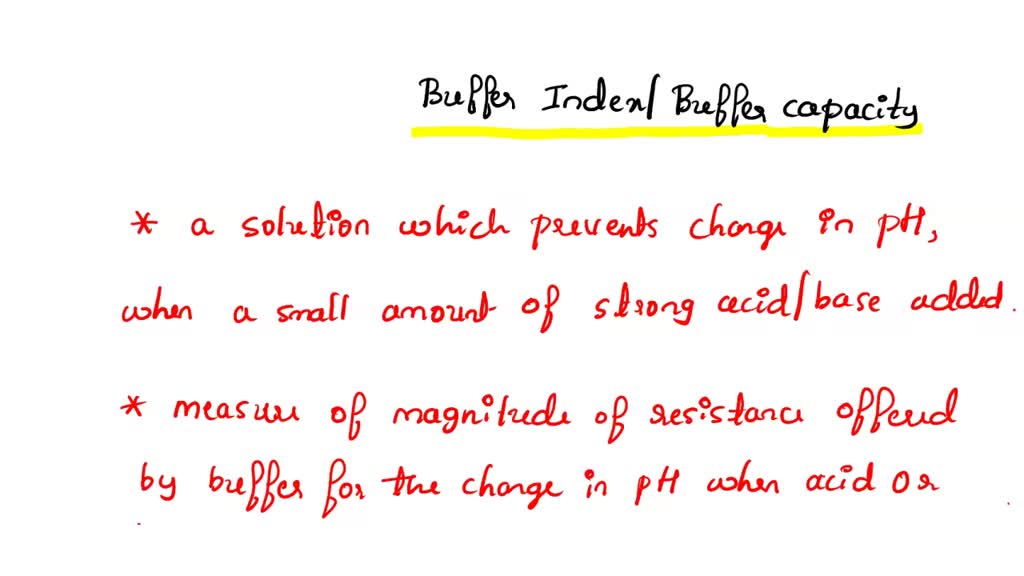 Buffer Index/Buffer capacity
* a solution which prevents change in pH,
when a small amount of strong acid/base added.
* measure of magnitude of resistance offered
by buffer for the change in pH when acid or